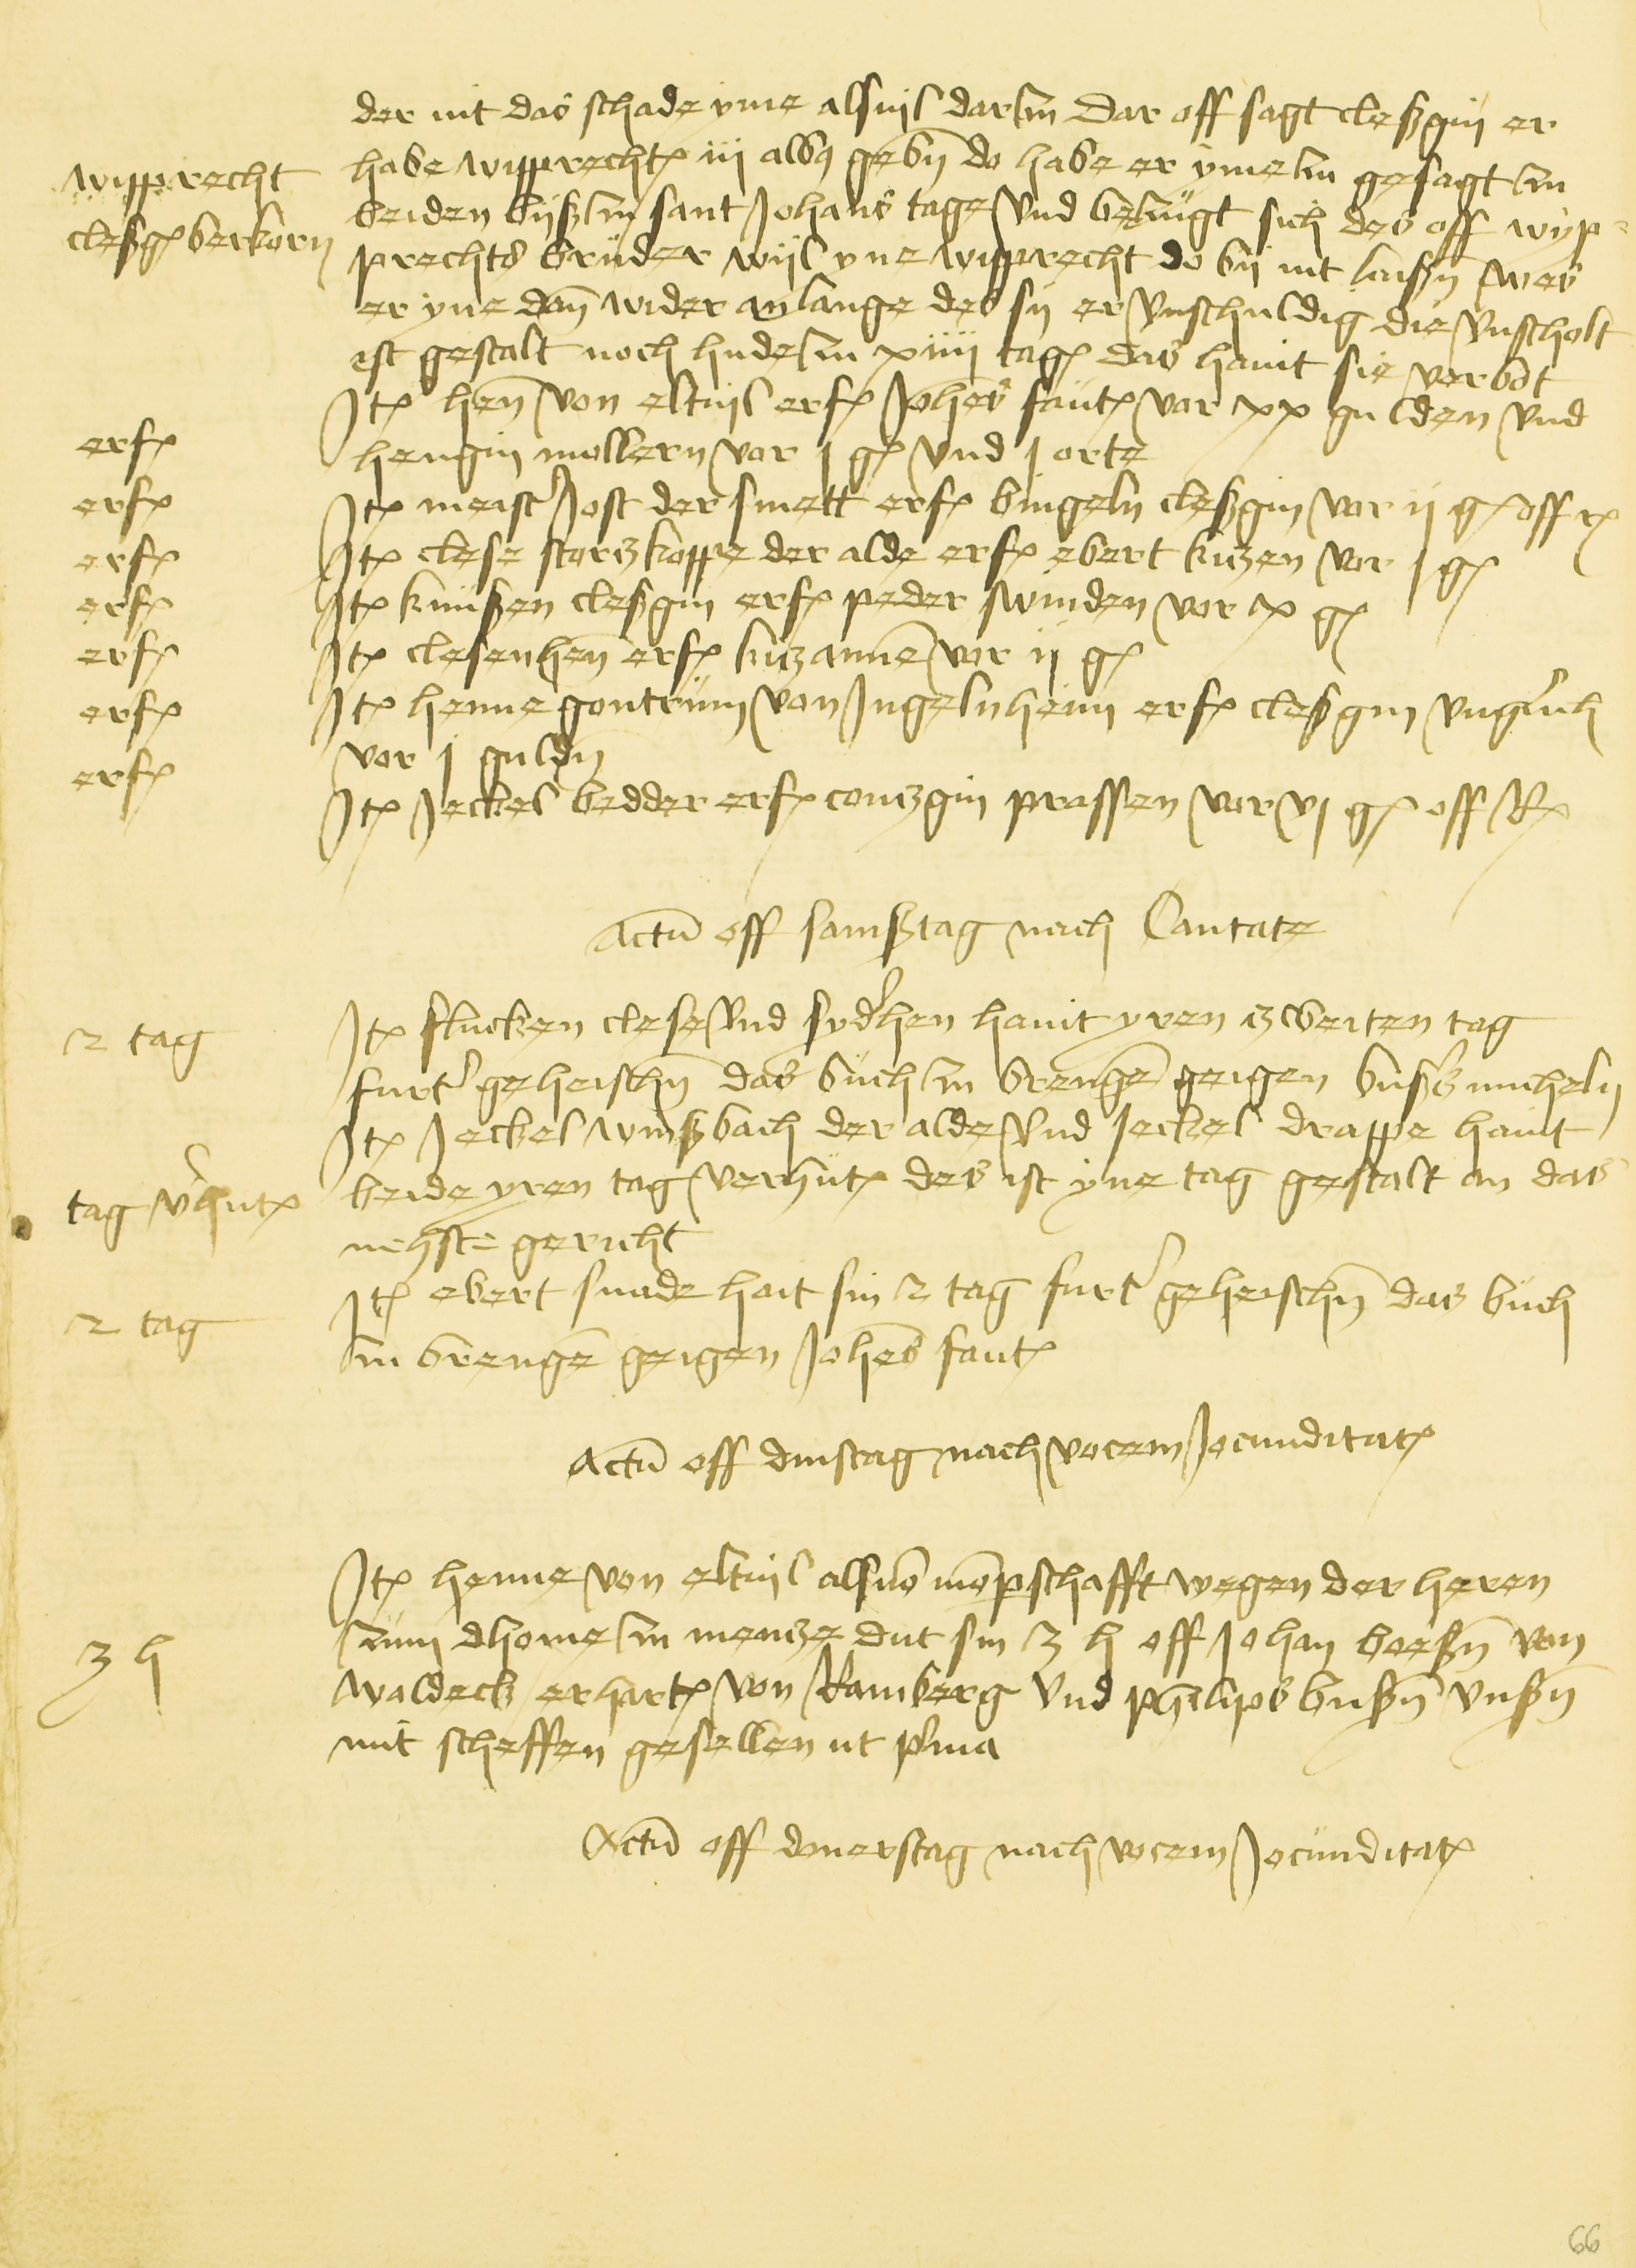 der nit das schade yme alsuil dar zu Dar off sagt cleßgin er
wipprecht
habe wipprecht iij alb9 gebn̄ do habe er yme zu gesagt zu
cleßg berkorn
beiden bijß zu sant Johans tage vnd bezugt sich des off wyp-
prechts bruder wijl yne wipprecht do by nit laißn̄ wes
er yne dan̄ wider anlange des sy er vnschuldig die vnscholt
ist gestalt noch hude zu xiiij tag das hant sie verbot
erf
It hen̄ von eltuil erf Joh̄es faut vor xx gulden vnd
hengin mollern vor j g vnd j orte
erf
It meist Jost der smett erf bingeln cleßgin vor ij g off r
erf
It clese storczkoppe der alde erf ebert kiczen vor j g
erf
It knußen cleßgin erf peder swinden vor x g
erf
It clesenhen̄ erf kiczanne vor ij g
erf
It henne gontrum von Ingelnheim erf cleßgin vnglich
vor j guldn̄
erf
It Jeckel bedder erf conczgin prassen vor vj g off R
Actū off samßtag nach Cantate
2 tag
It flucken clese vnd syd'hen hant yren zweiten tag
furt' geheischn̄ das buch zu brengē geigen bußs micheln
It Jeckel winßbach der alde vnd Jeckel drappe hant
tag v'hut
beide yren tag verhut des ist yne tag gestalt an das
nehste gericht
2 tag
It ebert snade hait sin 2 tag furt' geheischn̄ das buch
zu brengē geigen Joh̄es faut
Actū off dinstag nach vocem Jocunditat
It henne von eltuil als vō mō̄pschafft wegen der heren
3 h
zum dhome zu mencze dut sin 3 h off Johan boeßn̄ von
waldeck erhart von Ramberg vnd ph̄ilips bußn̄ vnßn̄
mit scheffen gesellen ut p'ma
Actū off donerstag nach vocem Jocunditat
66